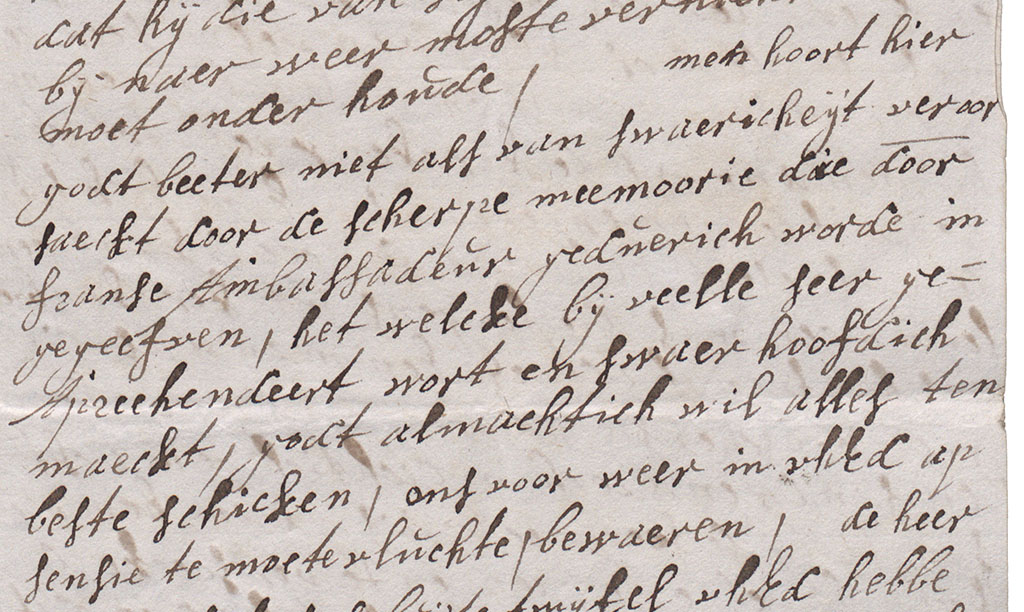 dat hij die van
bij naer weer moste
moet onder houde / men hoort hier
godt beeter niet als van swaericheijt veroor
saeckt door de scherpe meemoorie die door
franse Ambassadeur geduerich worde in
gegeefven, het welcke bij veelle seer ge=
Apreehendeert wort en swaer hoofdich
maeckt, godt almachtich wil alles ten
beste schicken, ons voor weer in vhEd ap
sensie te moete vluchte, bewaeren, de heer
twijfel vhEd hebbe